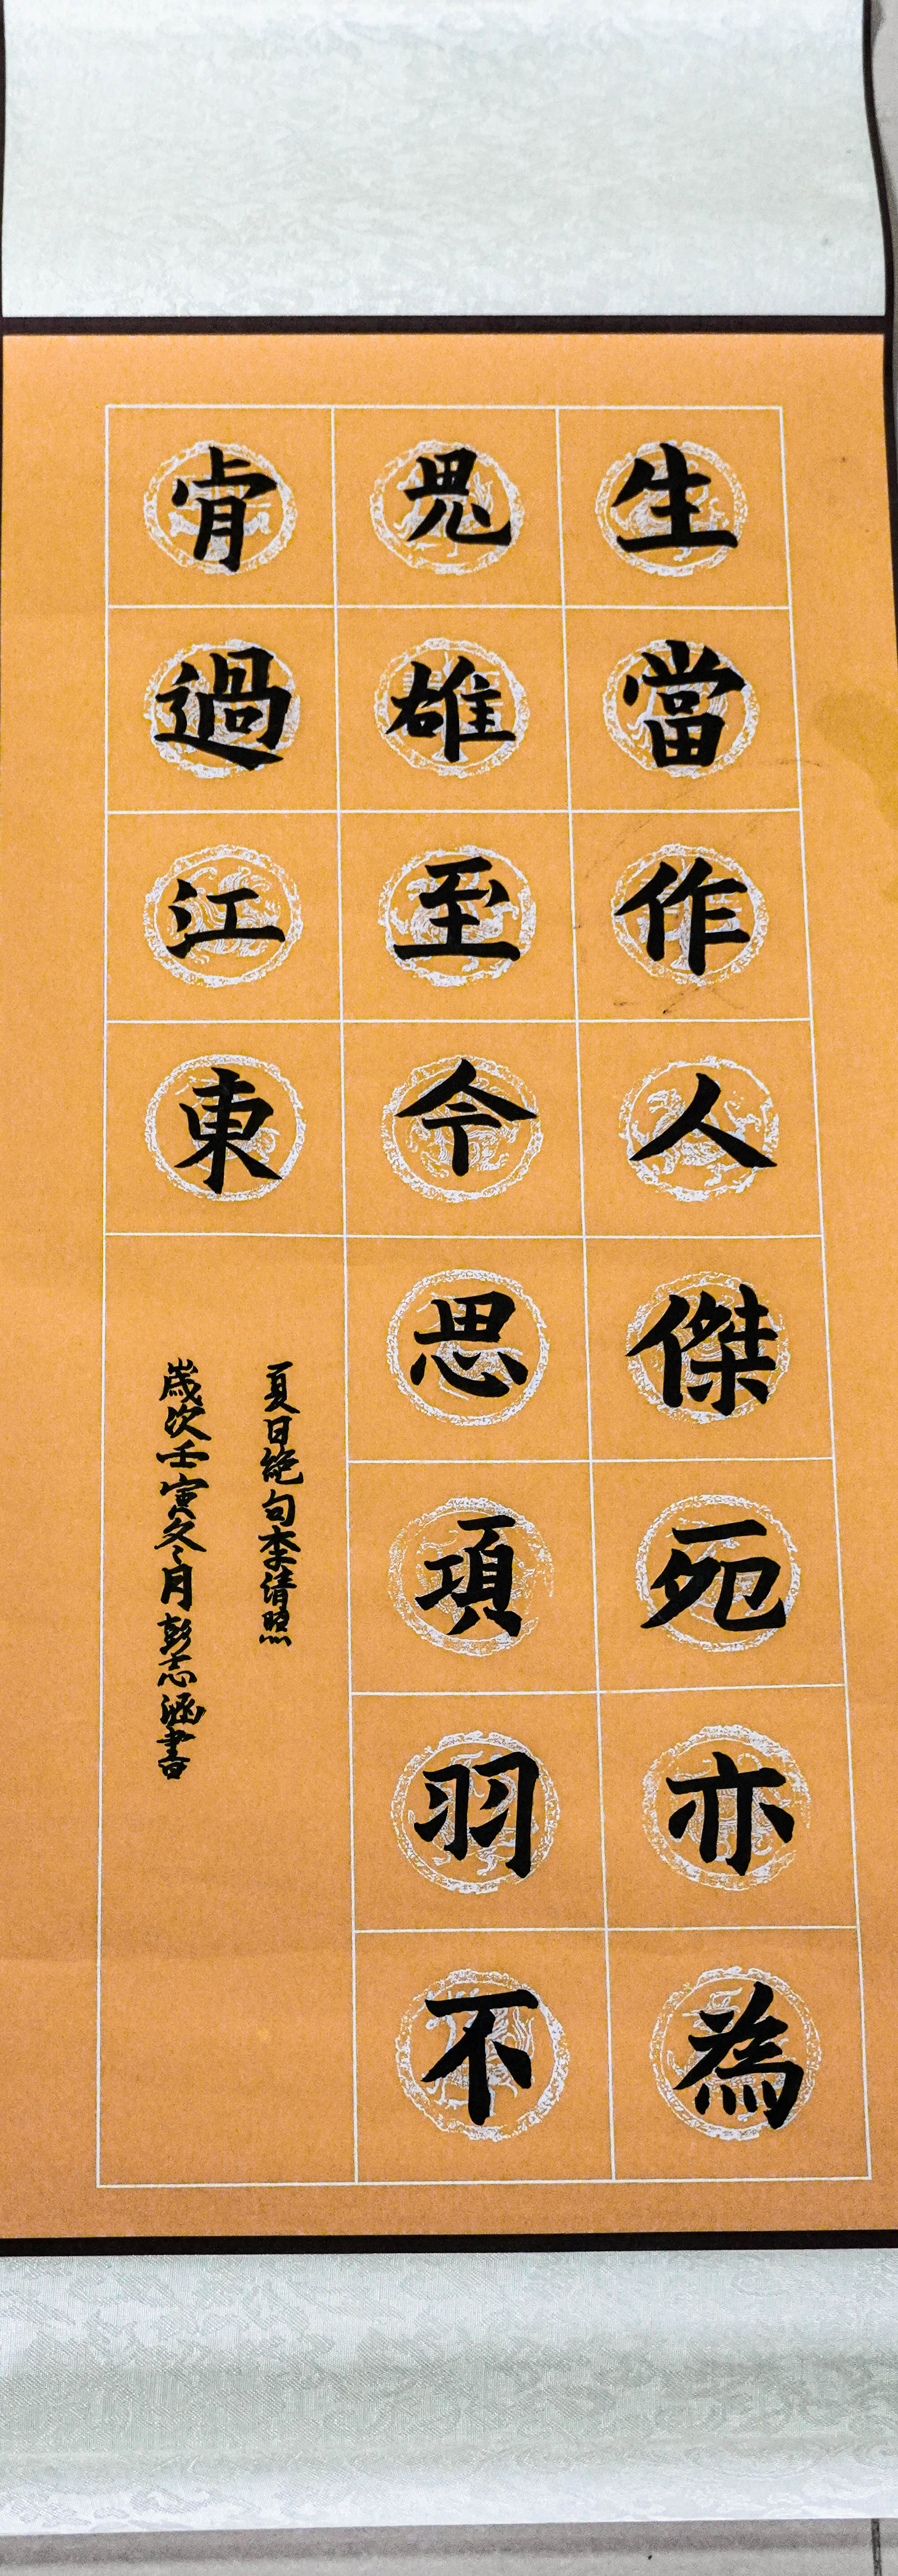 生當作人傑死亦為
鬼雄至今思項羽不
肯過江東
夏日絕句李清照
歲次壬寅冬月彭志涵書